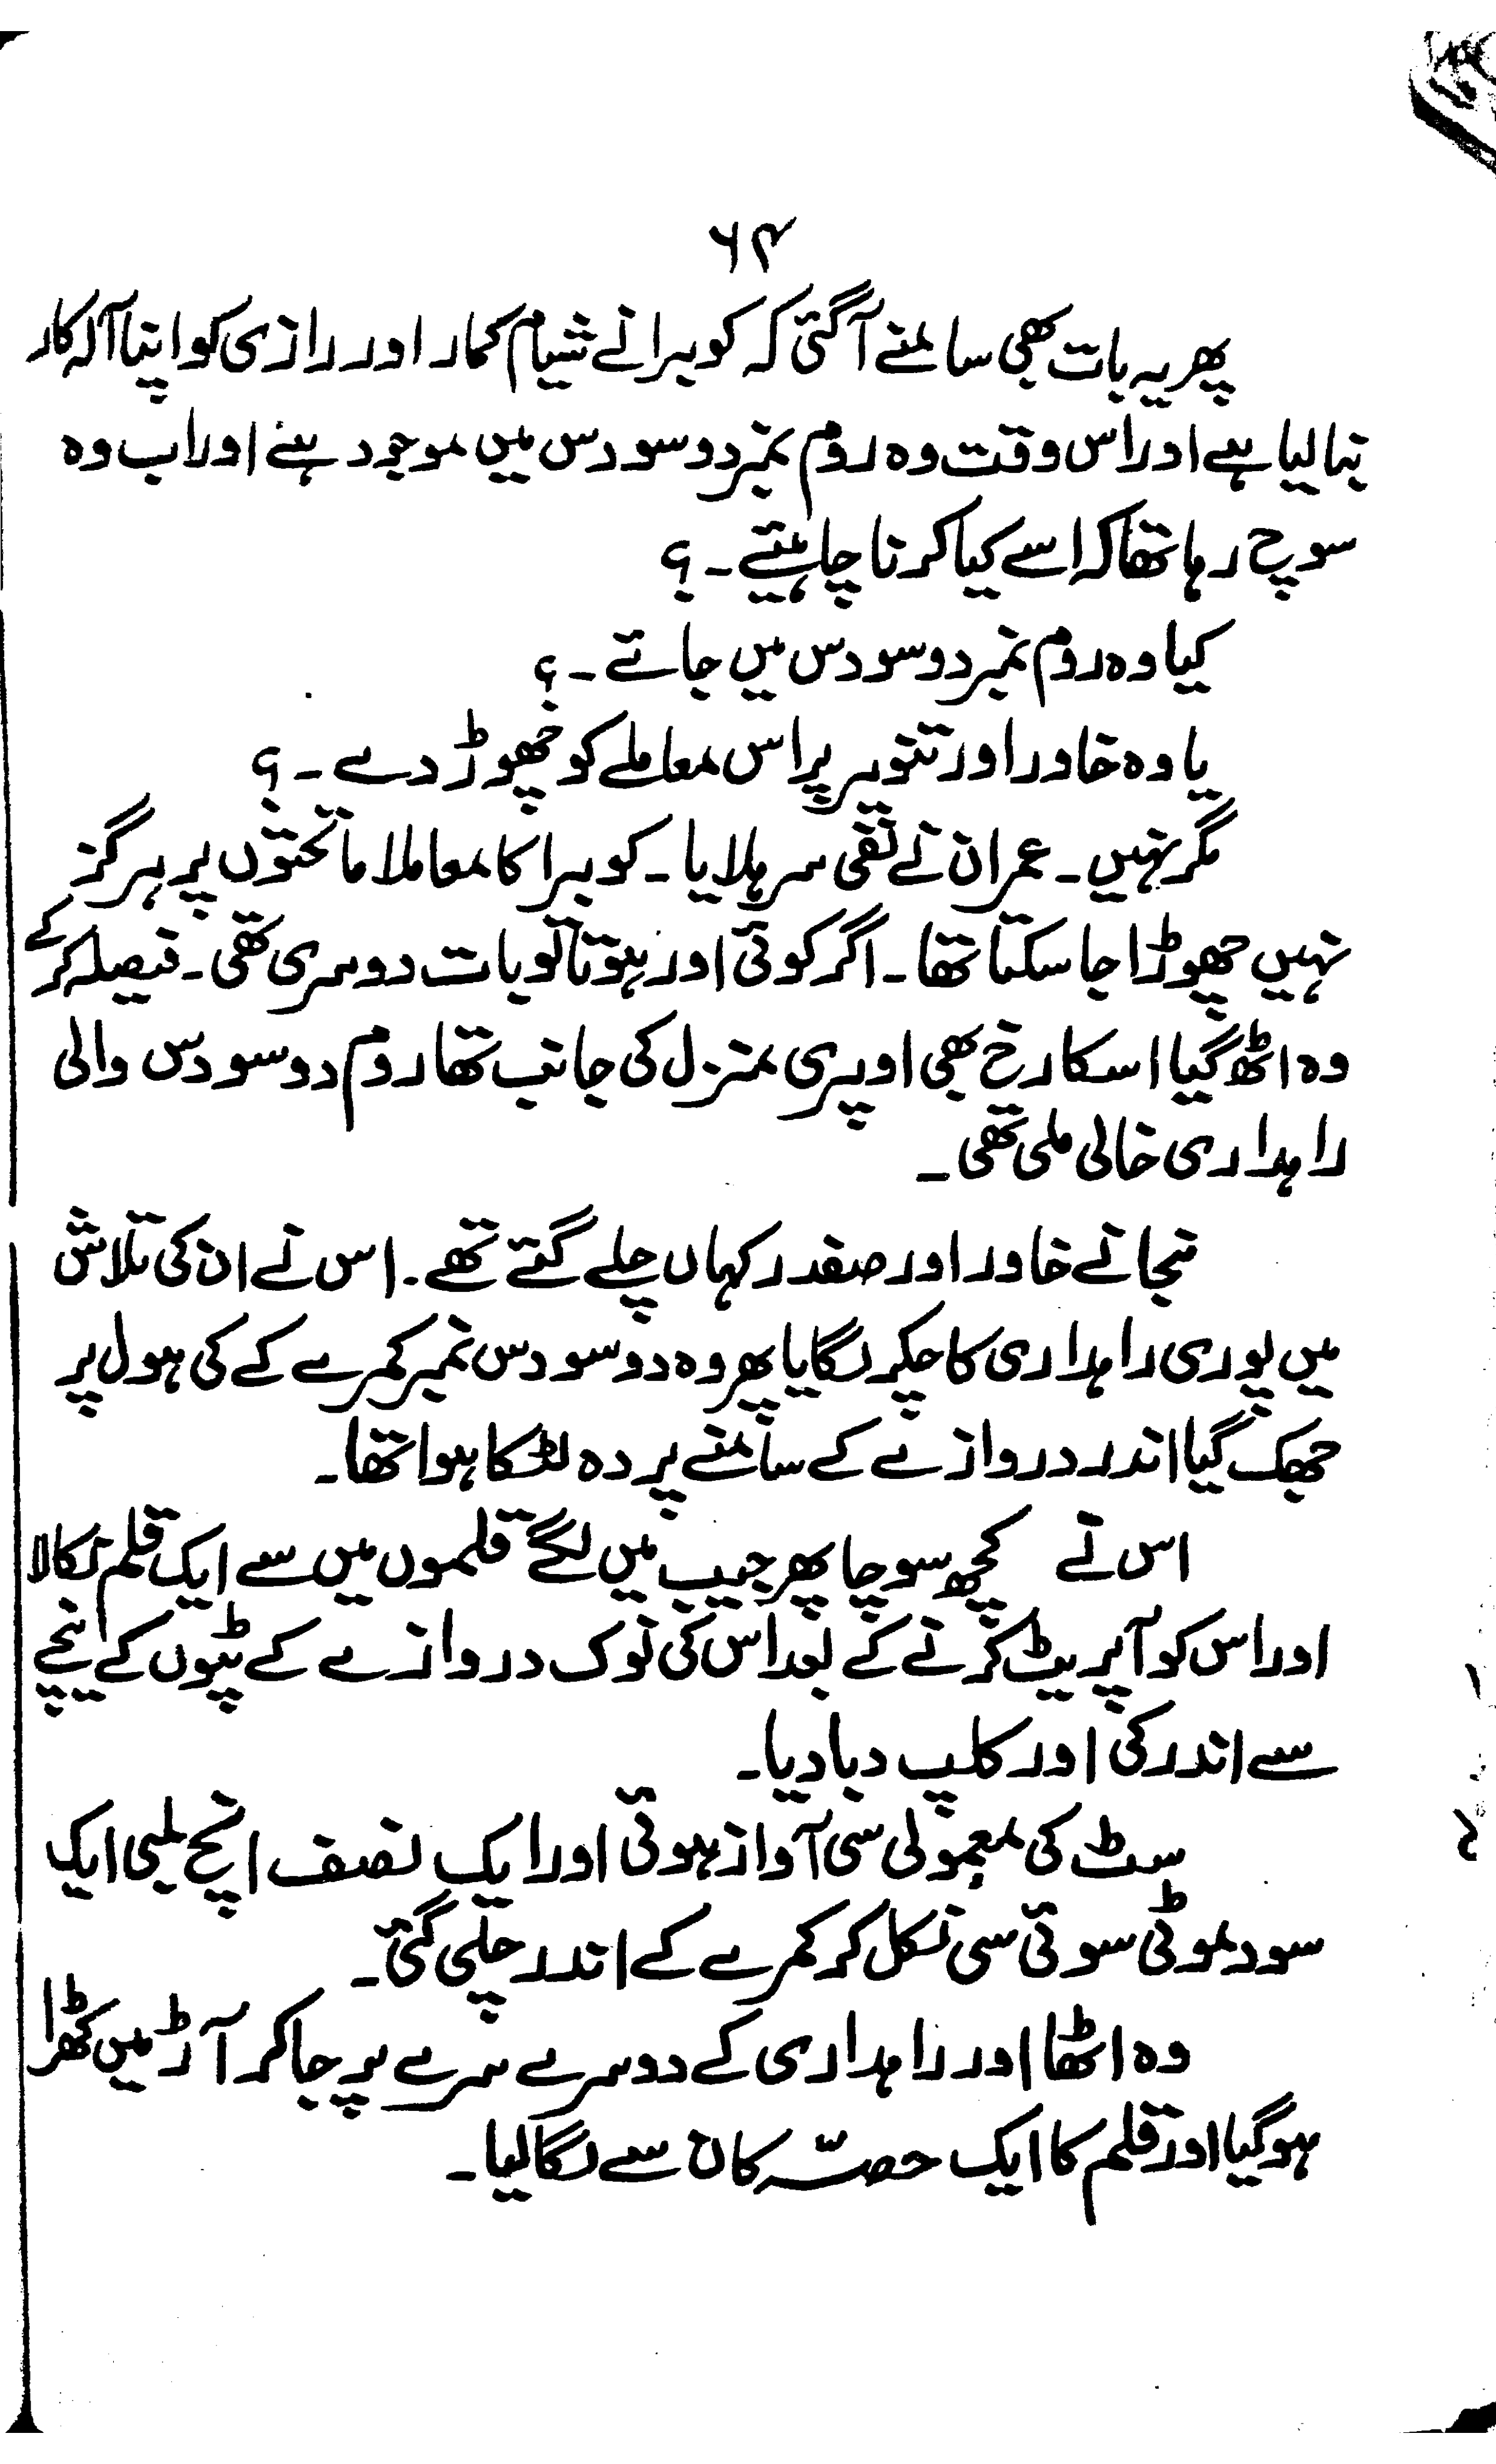 ۶۴
پھر یہ بات بھی سامنے آ گئی کہ کوبرا نے شیام کمار اور رازی کو اپنا آلہ کار
بنا لیا ہے اور اس وقت وہ روم نمبر دو سو دس میں موجود ہے اور اب وہ
سوچ رہا تھا کہ اسے کیا کرنا چاہیئے ۔ ؟
کیا وہ روم نمبر دو سو دس میں جائے ۔ ؟
یا وہ خاور اور تنویر پر اس معاملے کو چھوڑ دے ۔ ؟
مگر نہیں ۔ عمران نے نفی سر ہلایا ۔ کوبرا کا معاملا ماتحتوں پر ہرگز
نہیں چھوڑا جا سکتا تھا ۔ اگر کوئی اور ہوتا تو بات دوسری تھی ۔ فیصلہ کر کے
وہ اٹھ گیا اسکا رخ بھی اوپری منزل کی جانب تھا روم دو سو دس والی
راہداری خالی ملی تھی ۔
نجانے خاور اور صفدر کہاں چلے گئے تھے ۔ اس نے ان کی تلاش
میں پوری راہداری کا چکر لگایا پھر وہ دو سو دس نمبر کمرے کے کی ہول پر
جھک گیا اندر دروازے کے سامنے پردہ لٹکا ہوا تھا ۔
اس نے کچھ سوچا پھر جیب میں لگے قلموں میں سے ایک قلم نکالا
اور اس کو آپریٹ کرنے کے بعد اس کی نوک دروازے کے پٹوں کے نیچے
سے اندر کی اور کلپ دبا دیا ۔
سٹ کی معمولی سی آواز ہوئی اور ایک نصف انچ لمبی ایک
سود موٹی سوئی سی نکل کر کمرے کے اندر چلی گئی ۔
وہ اٹھا اور راہداری کے دوسرے سرے پر جا کر آڑ میں کھڑا
ہو گیا اور قلم کا ایک حصّہ کان سے لگا لیا ۔